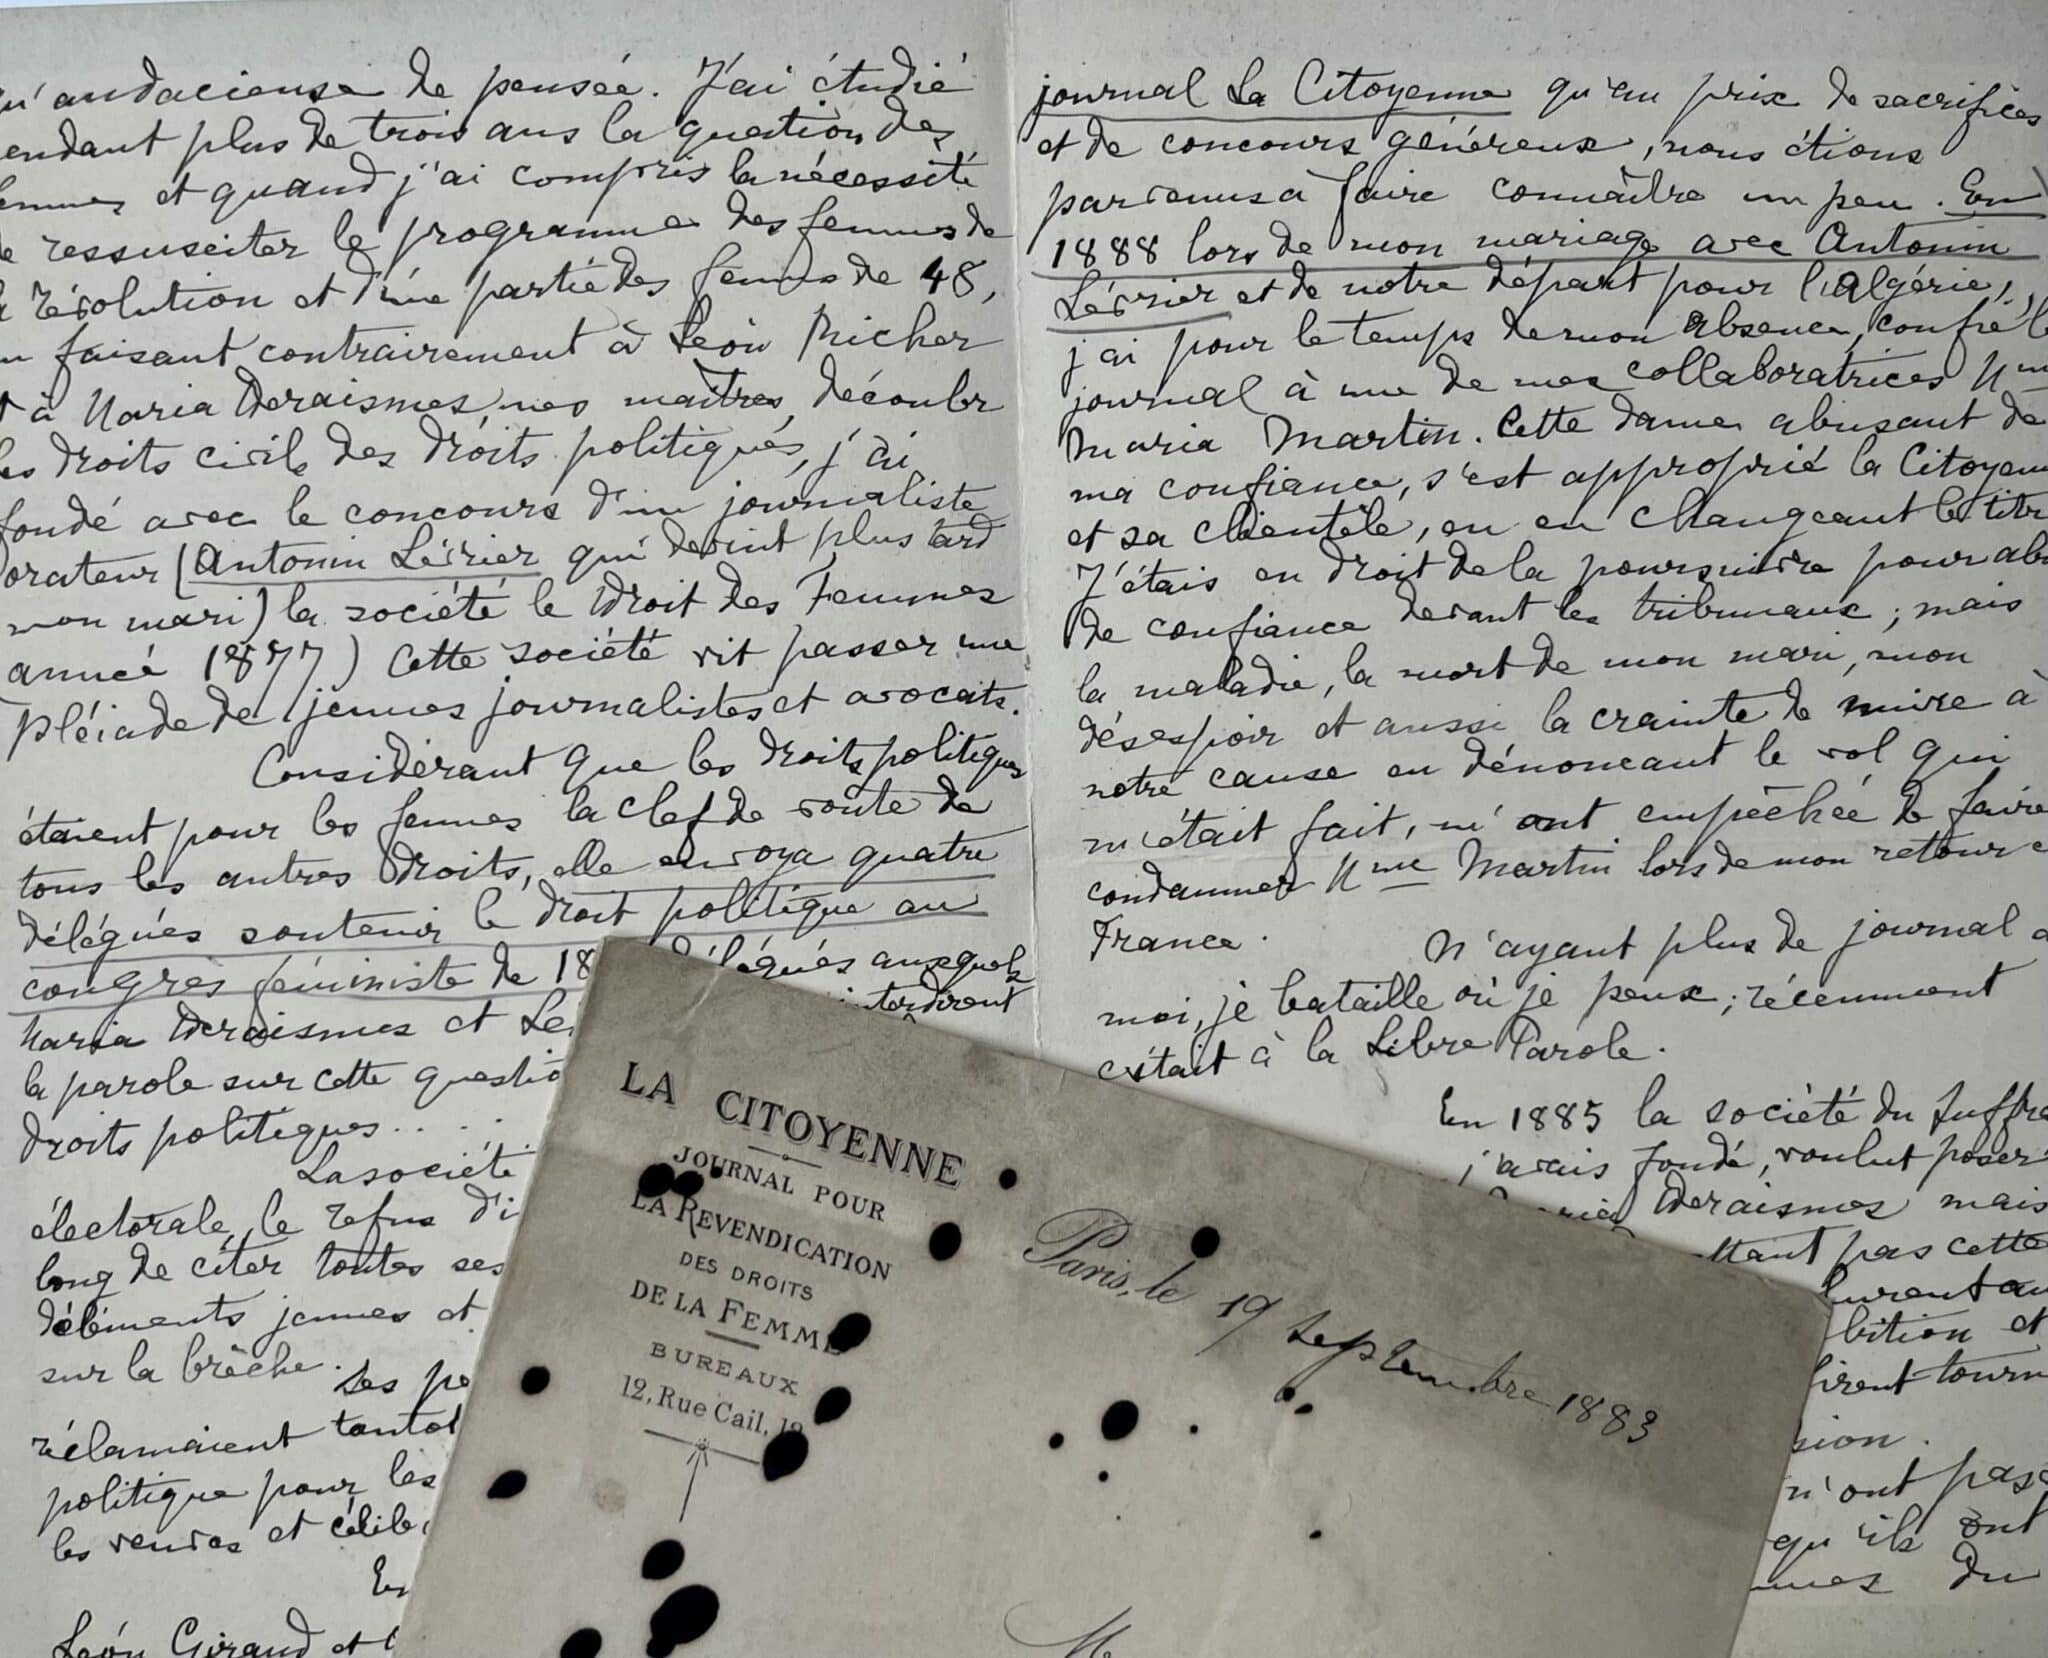 qu'audacieuse de pensée. J'ai étudié
pendant plus de trois ans la question des
femmes et quand j'ai compris la nécessité
de ressusciter le programme des femmes de
la révolution et d'une partie des femmes de 48,
en faisant contrairement à Léon Richer
et à Maria Deraismes, nos maîtres, découler
les droits civils des droits politiques, j'ai
fondé avec le concours d'un journaliste
orateur (Antonin Lévrier qui devint plus tard
mon mari) la société le Droit des Femmes
(année 1877) Cette société vit passer une
pléiade de jeunes journalistes et avocats.
Considérant que les droits politiques
étaient pour les femmes la clef de voûte de
tous les autres droits, elle envoya quatre
délégués soutenir le droit politique au
congrès féministe de 18 délégués auxquels
Maria Deraismes et Lé interdirent
la parole sur cette questio
droits politiques.....
La société
électorale, le refus d'i
long de citer toutes ses
d'éléments jeunes et
sur la brèche.
Ses pé
réclamaient tantôt
politique pour les
les veuves et célib
En
Léon Giraud et
journal La Citoyenne qu'au prix de sacrifices
et de concours généreux, nous étions
parvenus à faire connaître un peu. En
1888 lors de mon mariage avec Antonin
Lévrier et de notre départ pour l'Algérie,
j'ai pour le temps de mon absence, confié le
journal à une de mes collaboratrices Mme
Maria Martin. Cette dame abusant de
ma confiance, s'est approprié la Citoyenne
et sa clientèle, en en changeant le titre
J'étais en droit de la poursuivre pour abu
de confiance devant les tribunaux ; mais
la maladie, la mort de mon mari, mon
désespoir et aussi la crainte de nuire à
notre cause en dénonçant le vol qui
m'était fait, m'ont empêchée de faire
condamner Mme Martin lors de mon retour e
France.
N'ayant plus de journal à
moi, je bataille où je peux ; récemment
c'était à la Libre Parole.
En 1885 la société du Suffra
j'avais fondé, voulut poser
Maria Deraismes mais
ttant pas cette
lurent au
bition et
firent tourn
sion.
n'ont pas
qu'ils ont
mmes du
LA CITOYENNE
JOURNAL POUR
LA REVENDICATION
DES DROITS
DE LA FEMME
BUREAUX
12, Rue Cail, 12
Paris, le 19 septembre 1883
M